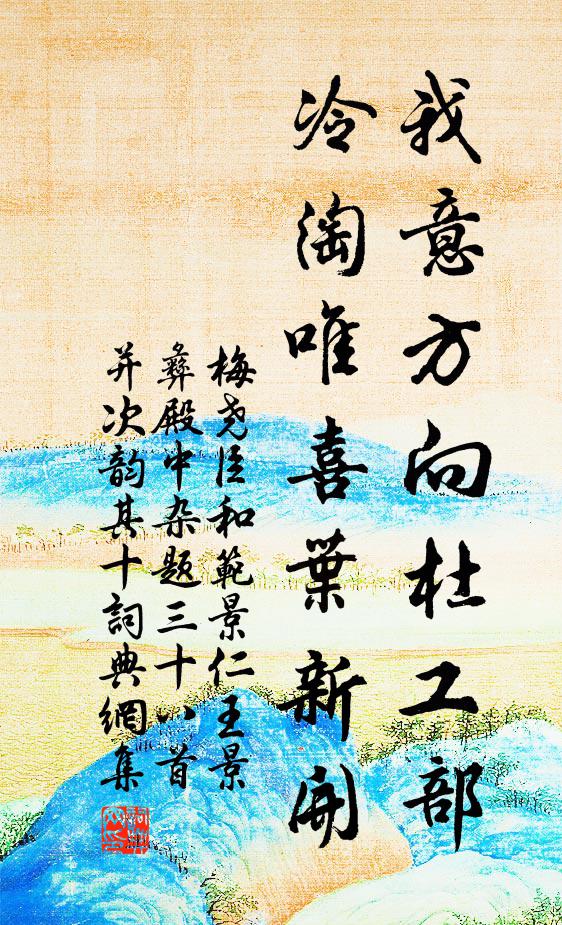 我意方向杜工部
冷淘唯喜葉新開
梅堯臣和範景仁王景
彝殿中杂题三十八首
并次韵其十詞典網集